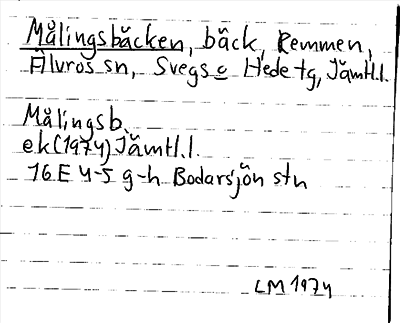 Målingsbäcken, bäck, Remmen,
Älvros sn, Svegs o Hede tg, Jämtl.l.
Målingsb.
ek(1974) Jämtl.l.
16E 4-5 g-h Bodarsjön stn
LM 1974